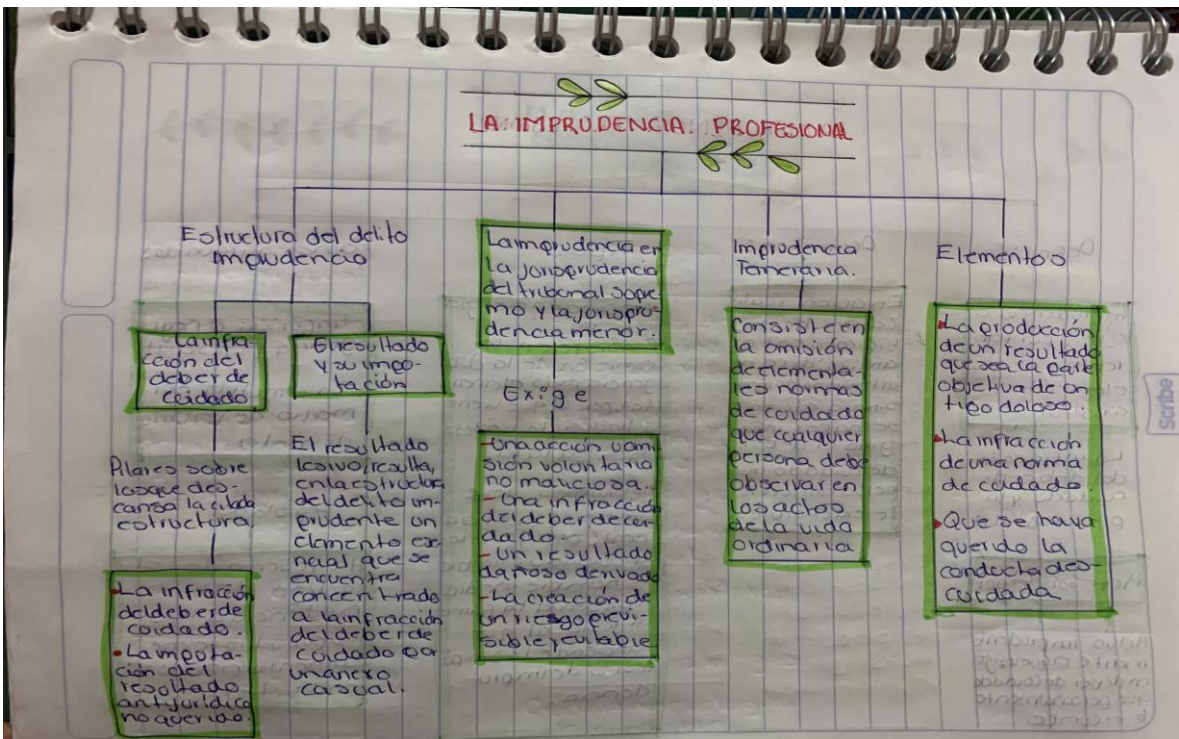 LA IMPRUDENCIA PROFESIONAL
Estructura del delito
imprudencia
La infra-
cción del
deber de
cuidado
El resultado
y su impu-
tación
Pilares sobre
los que des-
cansa la citada
estructura
La infracción
del deber de
cuidado.
La imputa-
ción del
resultado
antijurídico
no querido.
El resultado
lesivo, resulta,
en la estructura
del delito im-
prudente un
elemento
que se
encuentra
a la infracción
del deber de
cuidado por
un nexo
casual.
La imprudencia en
la jurisprudencia
del tribunal supre-
mo y la jurispru-
dencia menor.
Exige
-Una acción u omi-
sión voluntaria
no maliciosa.
-Una infracción
del deber de cui-
dado.
-Un resultado
dañoso derivado
-La creación de
un riesgo previ-
sible y evitable
Imprudencia
Temeraria.
Consiste en
la omisión
de elementa-
les normas
de cuidado
que cualquier
persona debe
observar en
los actos
de la vida
ordinaria
Elementos
La producción
de un resultado
que sea la parte
objetiva de un
tipo doloso.
La infracción
de una norma
de cuidado.
Que se haya
querido la
conducta des-
cuidada
Scribe